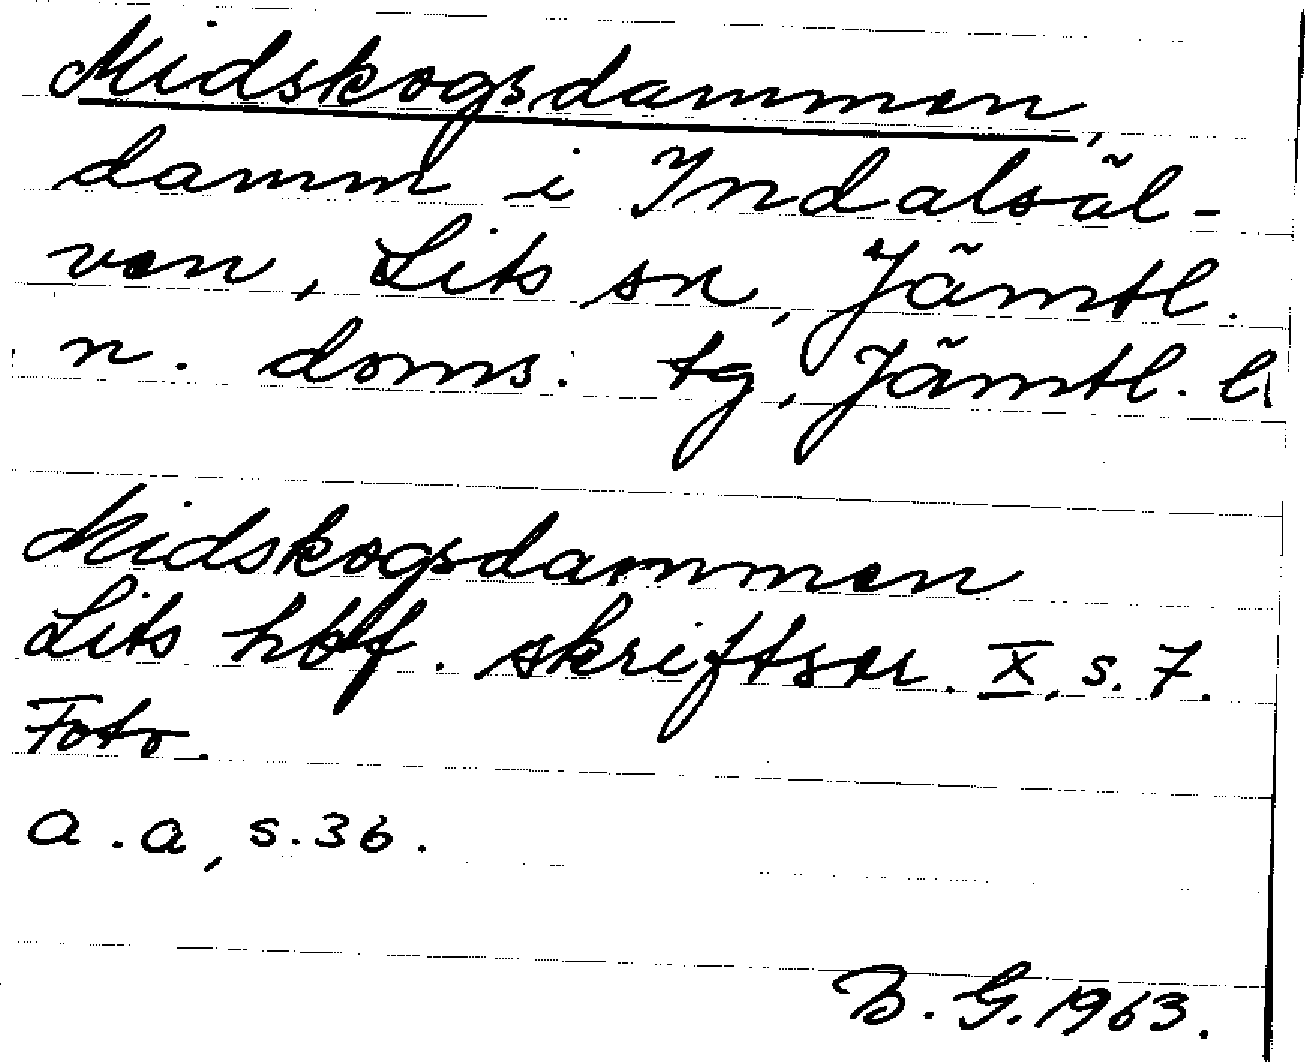 Midskogsdammen,
damm i Indalsäl-
ven, Lits sn, Jämtl.
n. doms. tg, Jämtl. l
Midskogsdammen
Lits hbf. skriftser. X, s. 7.
Foto.
a.a, s.36.
B.G.1963.